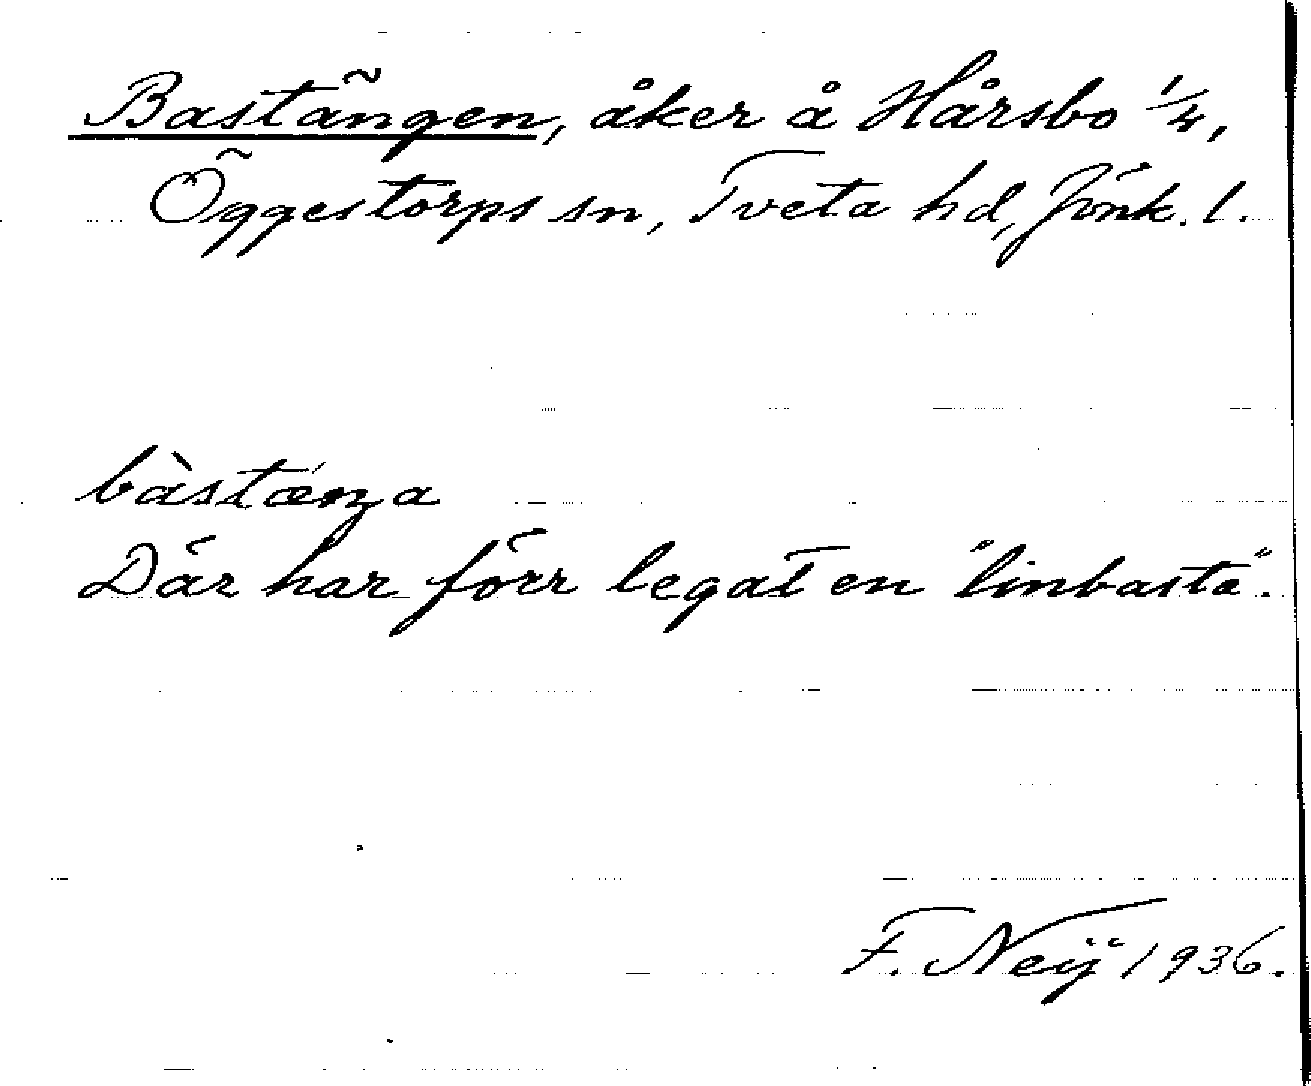 Bastängen, åker å Hårsbo 1/4,
Öggestorps sn, Tveta hd, Jönk. l.
bàstæŋa
Där har förr legat en "linbasta".
F. Neÿ 1936.